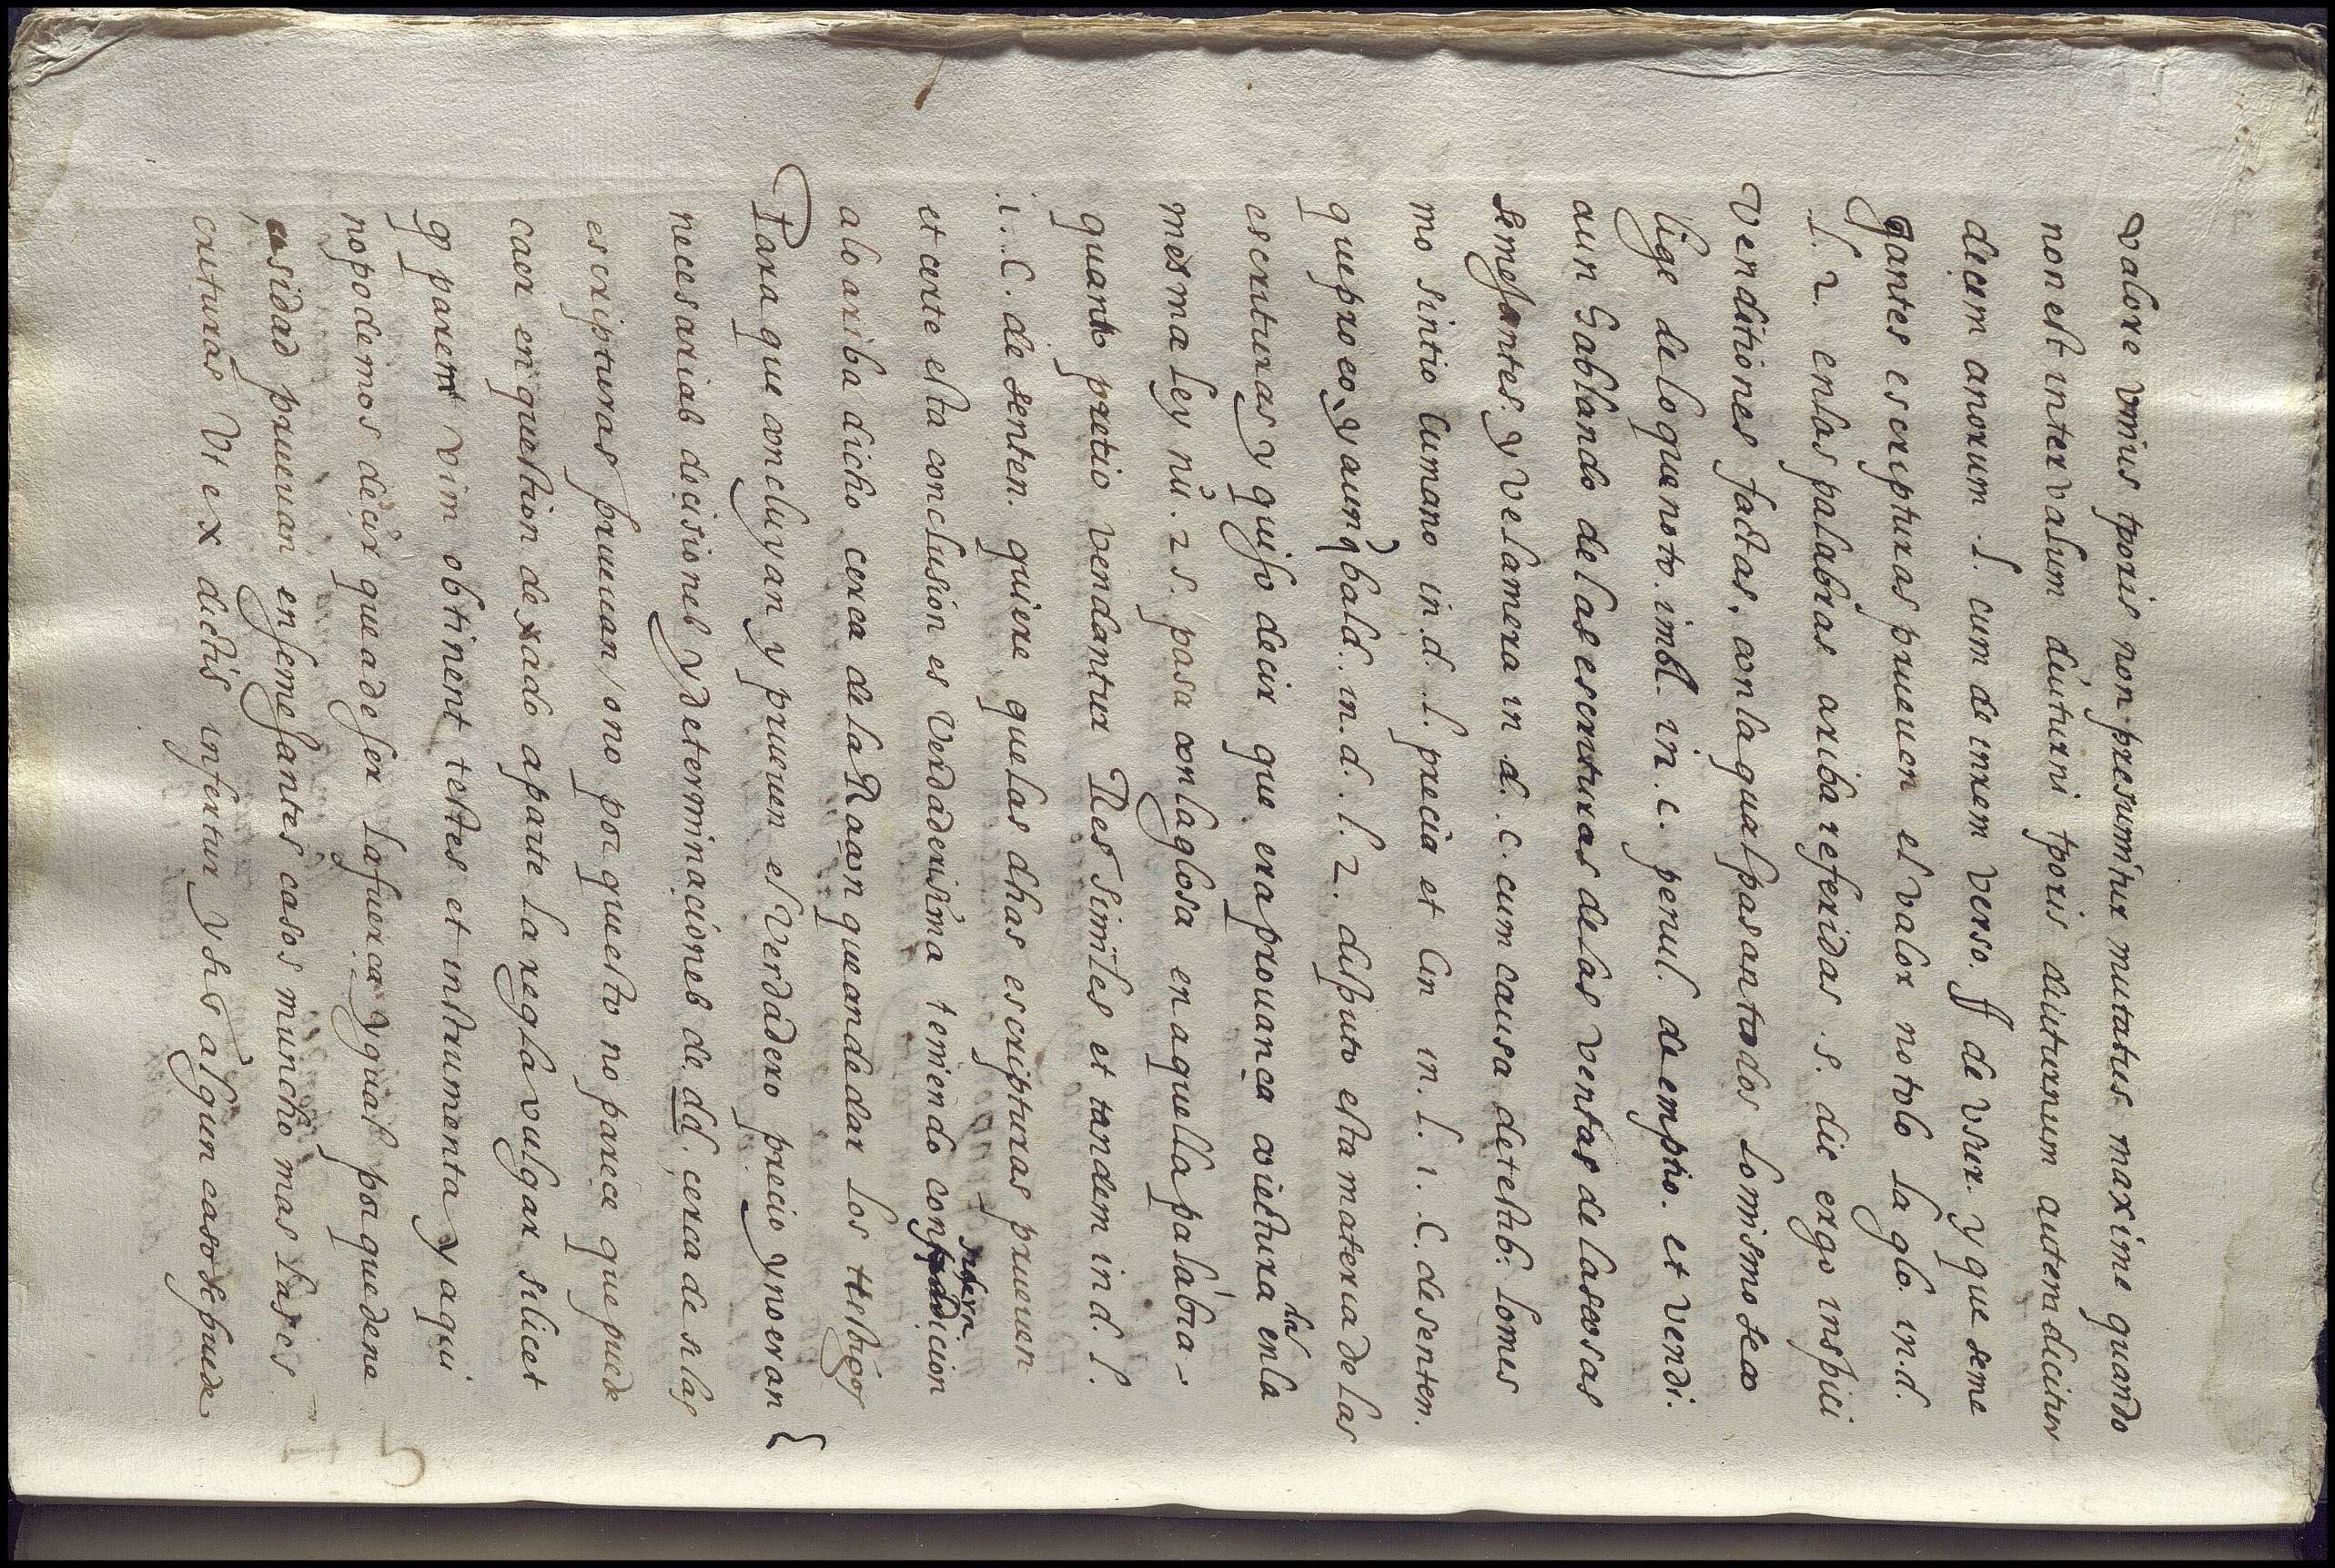 valore vnius tporis non presumitur mutatus maxime quando
non est intervalum diuturni tporis diuturnum autem dicitur
decem anorum .l. cum de inrem verso. ff de vsur. y que seme
gantes escripturas prueuen el valor notolo la glo. in.d.
.l. 2. enlas palabras ariba referidas .s. dic ergo inspici
venditiones factas, con la qual pasan todos lo mismo se co
lige de lo que noto. imbl. in .c. penul. de emptio. et vendi.
aun hablando de las escrituras de las ventas de las cosas
semejantes y vela mera in d. c. cum causa detestab: lo mis
mo sintio Cumano in.d. l. precia et in l. 1. C. de senten.
que pro eo, y aunq bald. in.d. l. 2. disputo esta materia de las
escrituras y quiso decir que era prouança en la
mesma ley nu. 25. pasa con la glosa en aquella palabra -
quanto pretio vendantur Res similes et tandem in d. l.
.1. C. de senten. quiere que las dhas escripturas prueuen
et certe esta conclusion es verdaderisima teniendo
alo ariba dicho cerca de la Raçon que an de dar los testigos
Para que concluyan y prueuen el verdadero precio y no eran
necesarias decisiones y determinaciones de. dd. cerca de si las
escripturas prueuan / o no por questo no parece que puede
caer en question dexado aparte la regla vulgar silicet
q parem vim obtinent testes et instrumenta y aqui
no podemos decir que a de ser la fuerça ygual por que de ne
cesidad prueuan en semejantes casos muncho mas las es
crituras Vt ex dictis infertur y si algun caso se puede